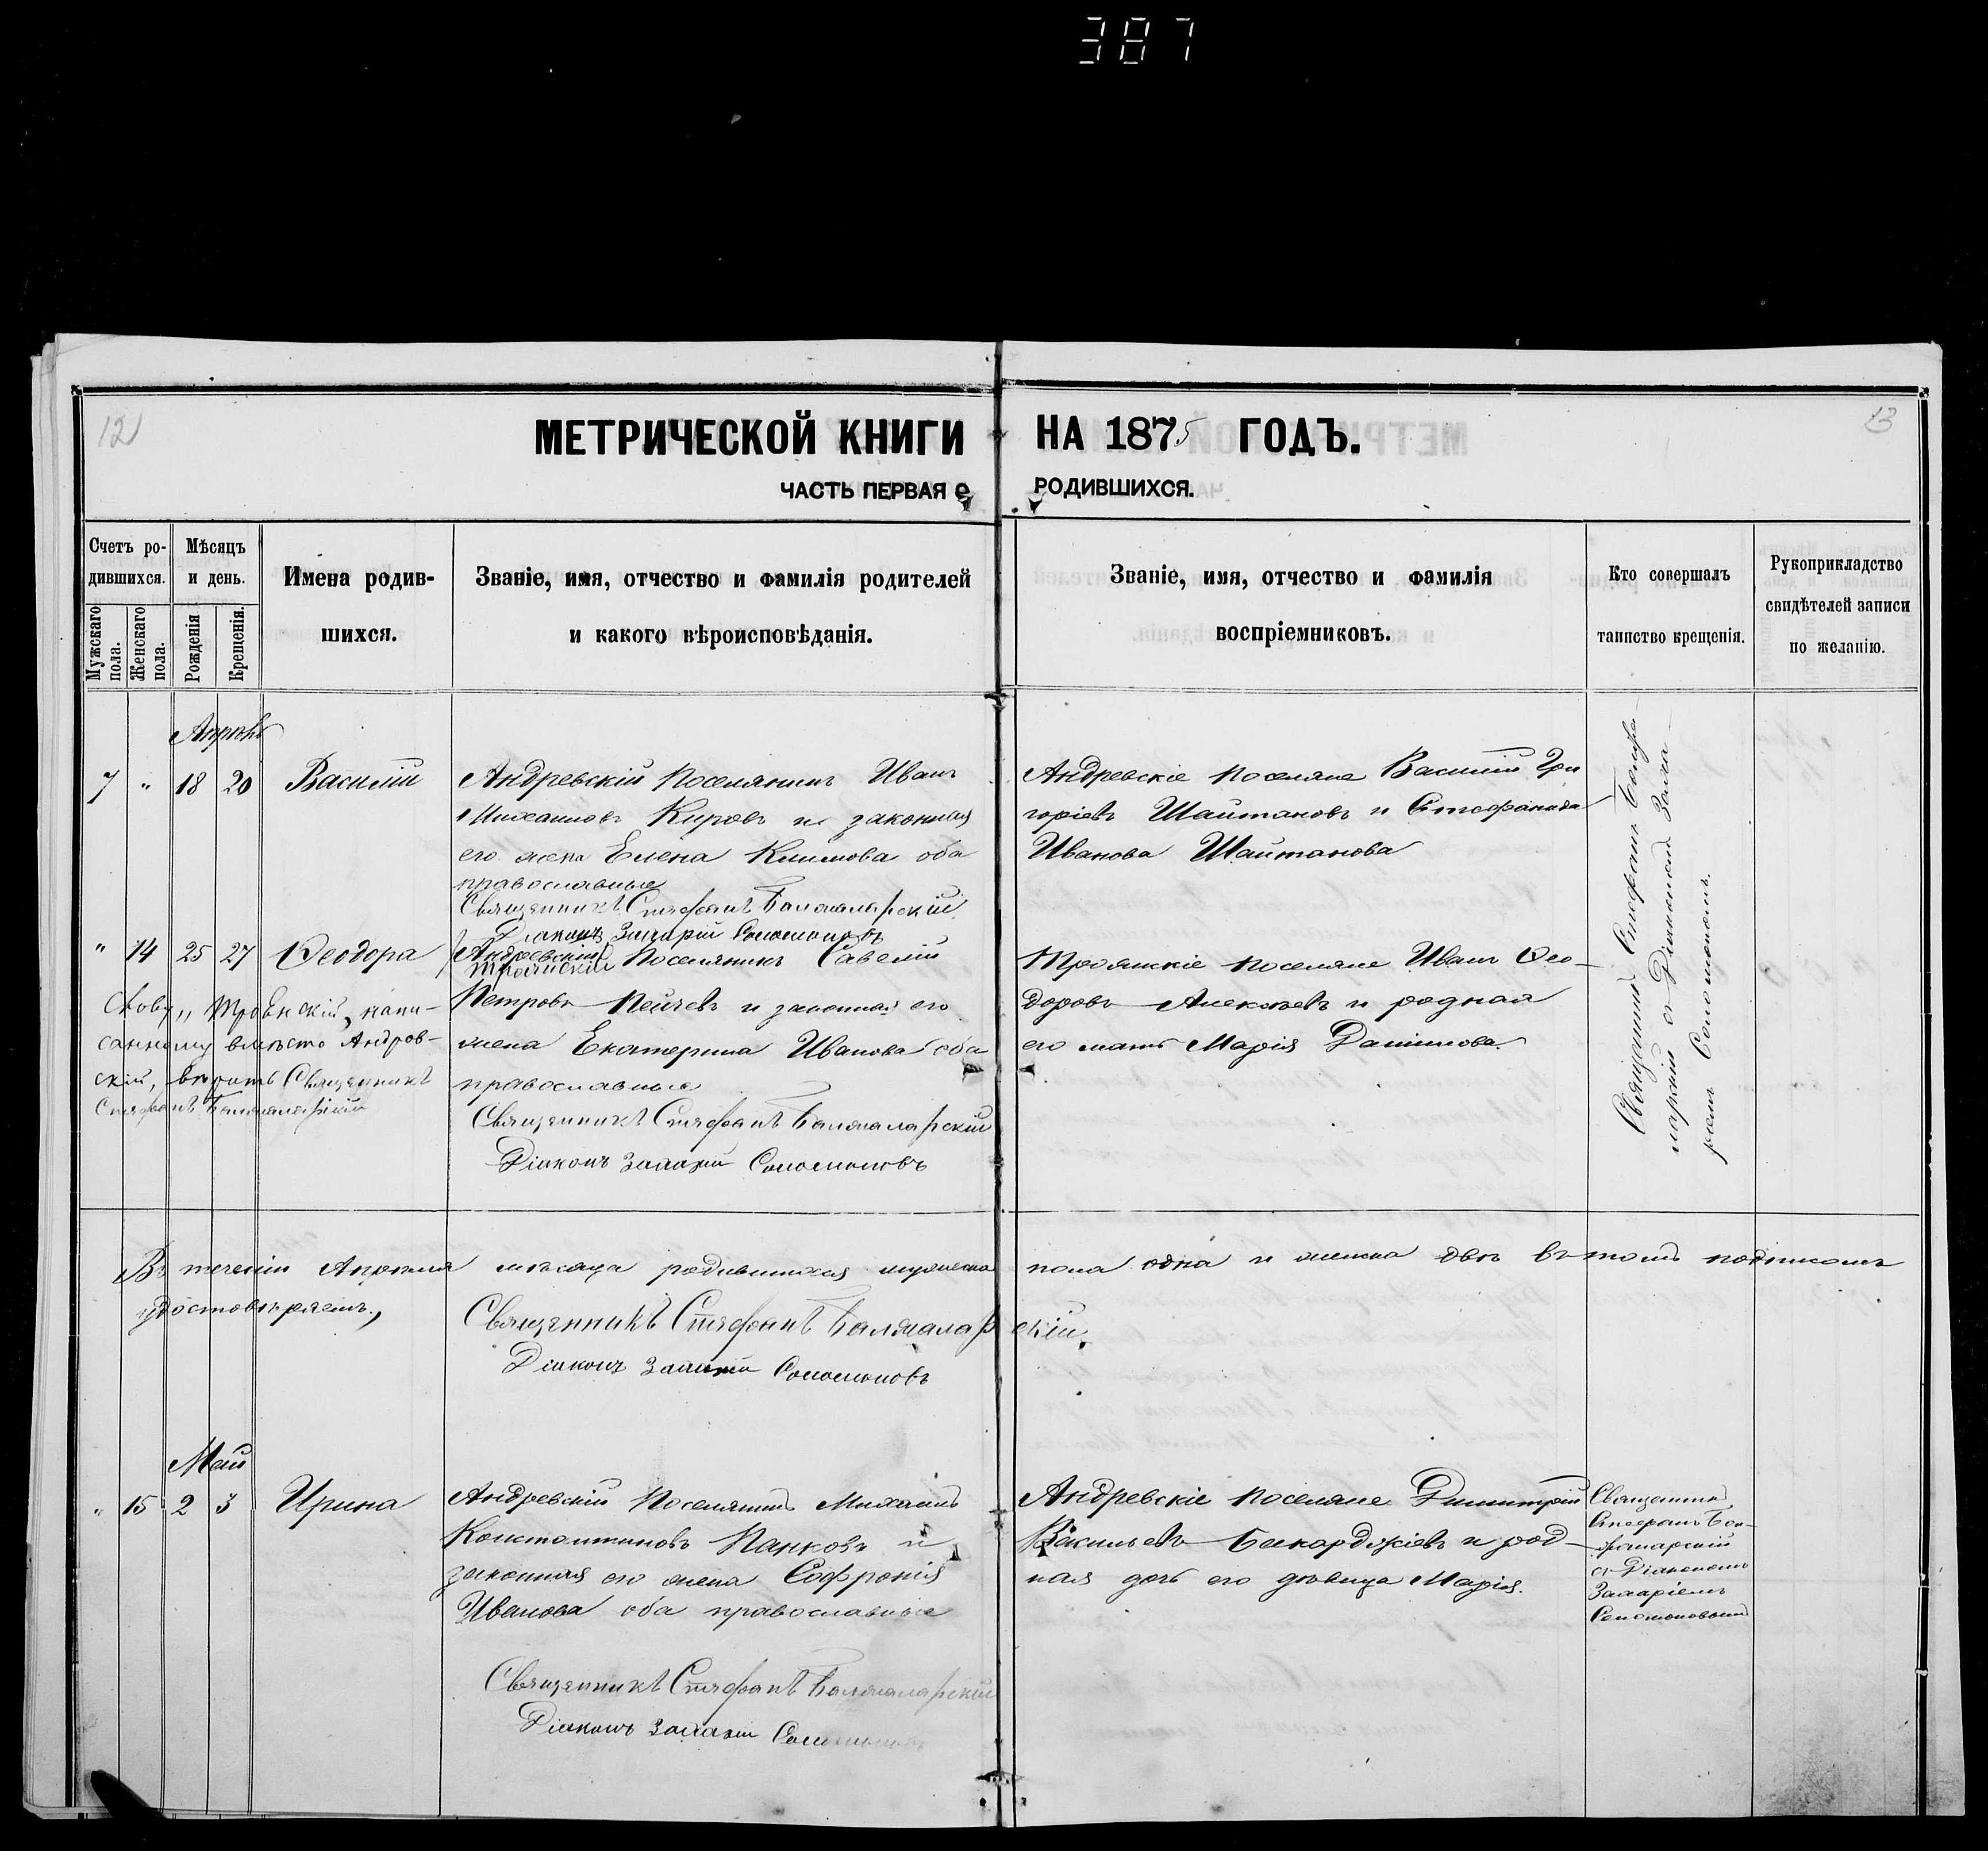 387
12
МЕТРИЧЕСКОЙ КНИГИ НА 1875 ГОДЪ.
13
ЧАСТЬ ПЕРВАЯ О РОДИВШИХСЯ.
Счетъ ро-
дившихся.
Мужскаго
пола.
Женскаго
пола.
Мѣсяцъ
и день.
Рожденія
Крещенія.
Имена родив-
шихся.
Званіе, имя, отчество и фамилія родителей
и какого вѣроисповѣданія.
Званіе, имя, отчество и фамилія
воспріемниковъ.
Кто совершалъ
таинство крещенія.
Рукоприкладство
свидѣтелей записи
по желанію.
Апрѣль
7 " 18 20 Василій
Андревскій Поселянинъ Иванъ
Михаиловъ Кировъ и законная
его жена Елена Климова оба
православные
Священникъ Стефанъ
Діаконъ Захарій Соломоновъ
Андревскіе поселяне Василій Гри
горіевъ Шайтановъ и Стефанида
Иванова Шайтанова
Священникъ Стефанъ
с Діакономъ
" 14 25 27 Ѳеодора
Андреевскій
Троянскій Поселянинъ Савелій
Петровъ Пейчевъ и законная его
жена Екатерина Иванова оба
православные
Священникъ Стефанъ
Діаконъ Захарій Соломоновъ
Троянскіе поселяне Иванъ Ѳео-
доровъ Алексѣевъ и родная
его мать Марія Данилова.
Слову „Троянскій„ напи-
санному вмѣсто Андров-
скій, вѣрить Священникъ
Стефанъ
Въ теченіи Апрѣля мѣсяца родившихся мужеска пола одна и женска двѣ въ томъ подписомъ
удостовѣряемъ.,
Священникъ Стефанъ
Діаконъ Захарій Соломоновъ
Май
" 15 2 3 Ирина
Андревскій Поселянинъ Михаилъ
Константиновъ Панковъ и
законная его жена Софронія
Иванова оба православные
Священникъ Стефанъ
Діаконъ Захарій
Андревскіе поселяне Димитрій
Васильевъ и род-
ная дочь его дѣвица Марія.
Священникъ
Стефанъ
с Діакономъ
Захаріемъ
Соломоновымъ